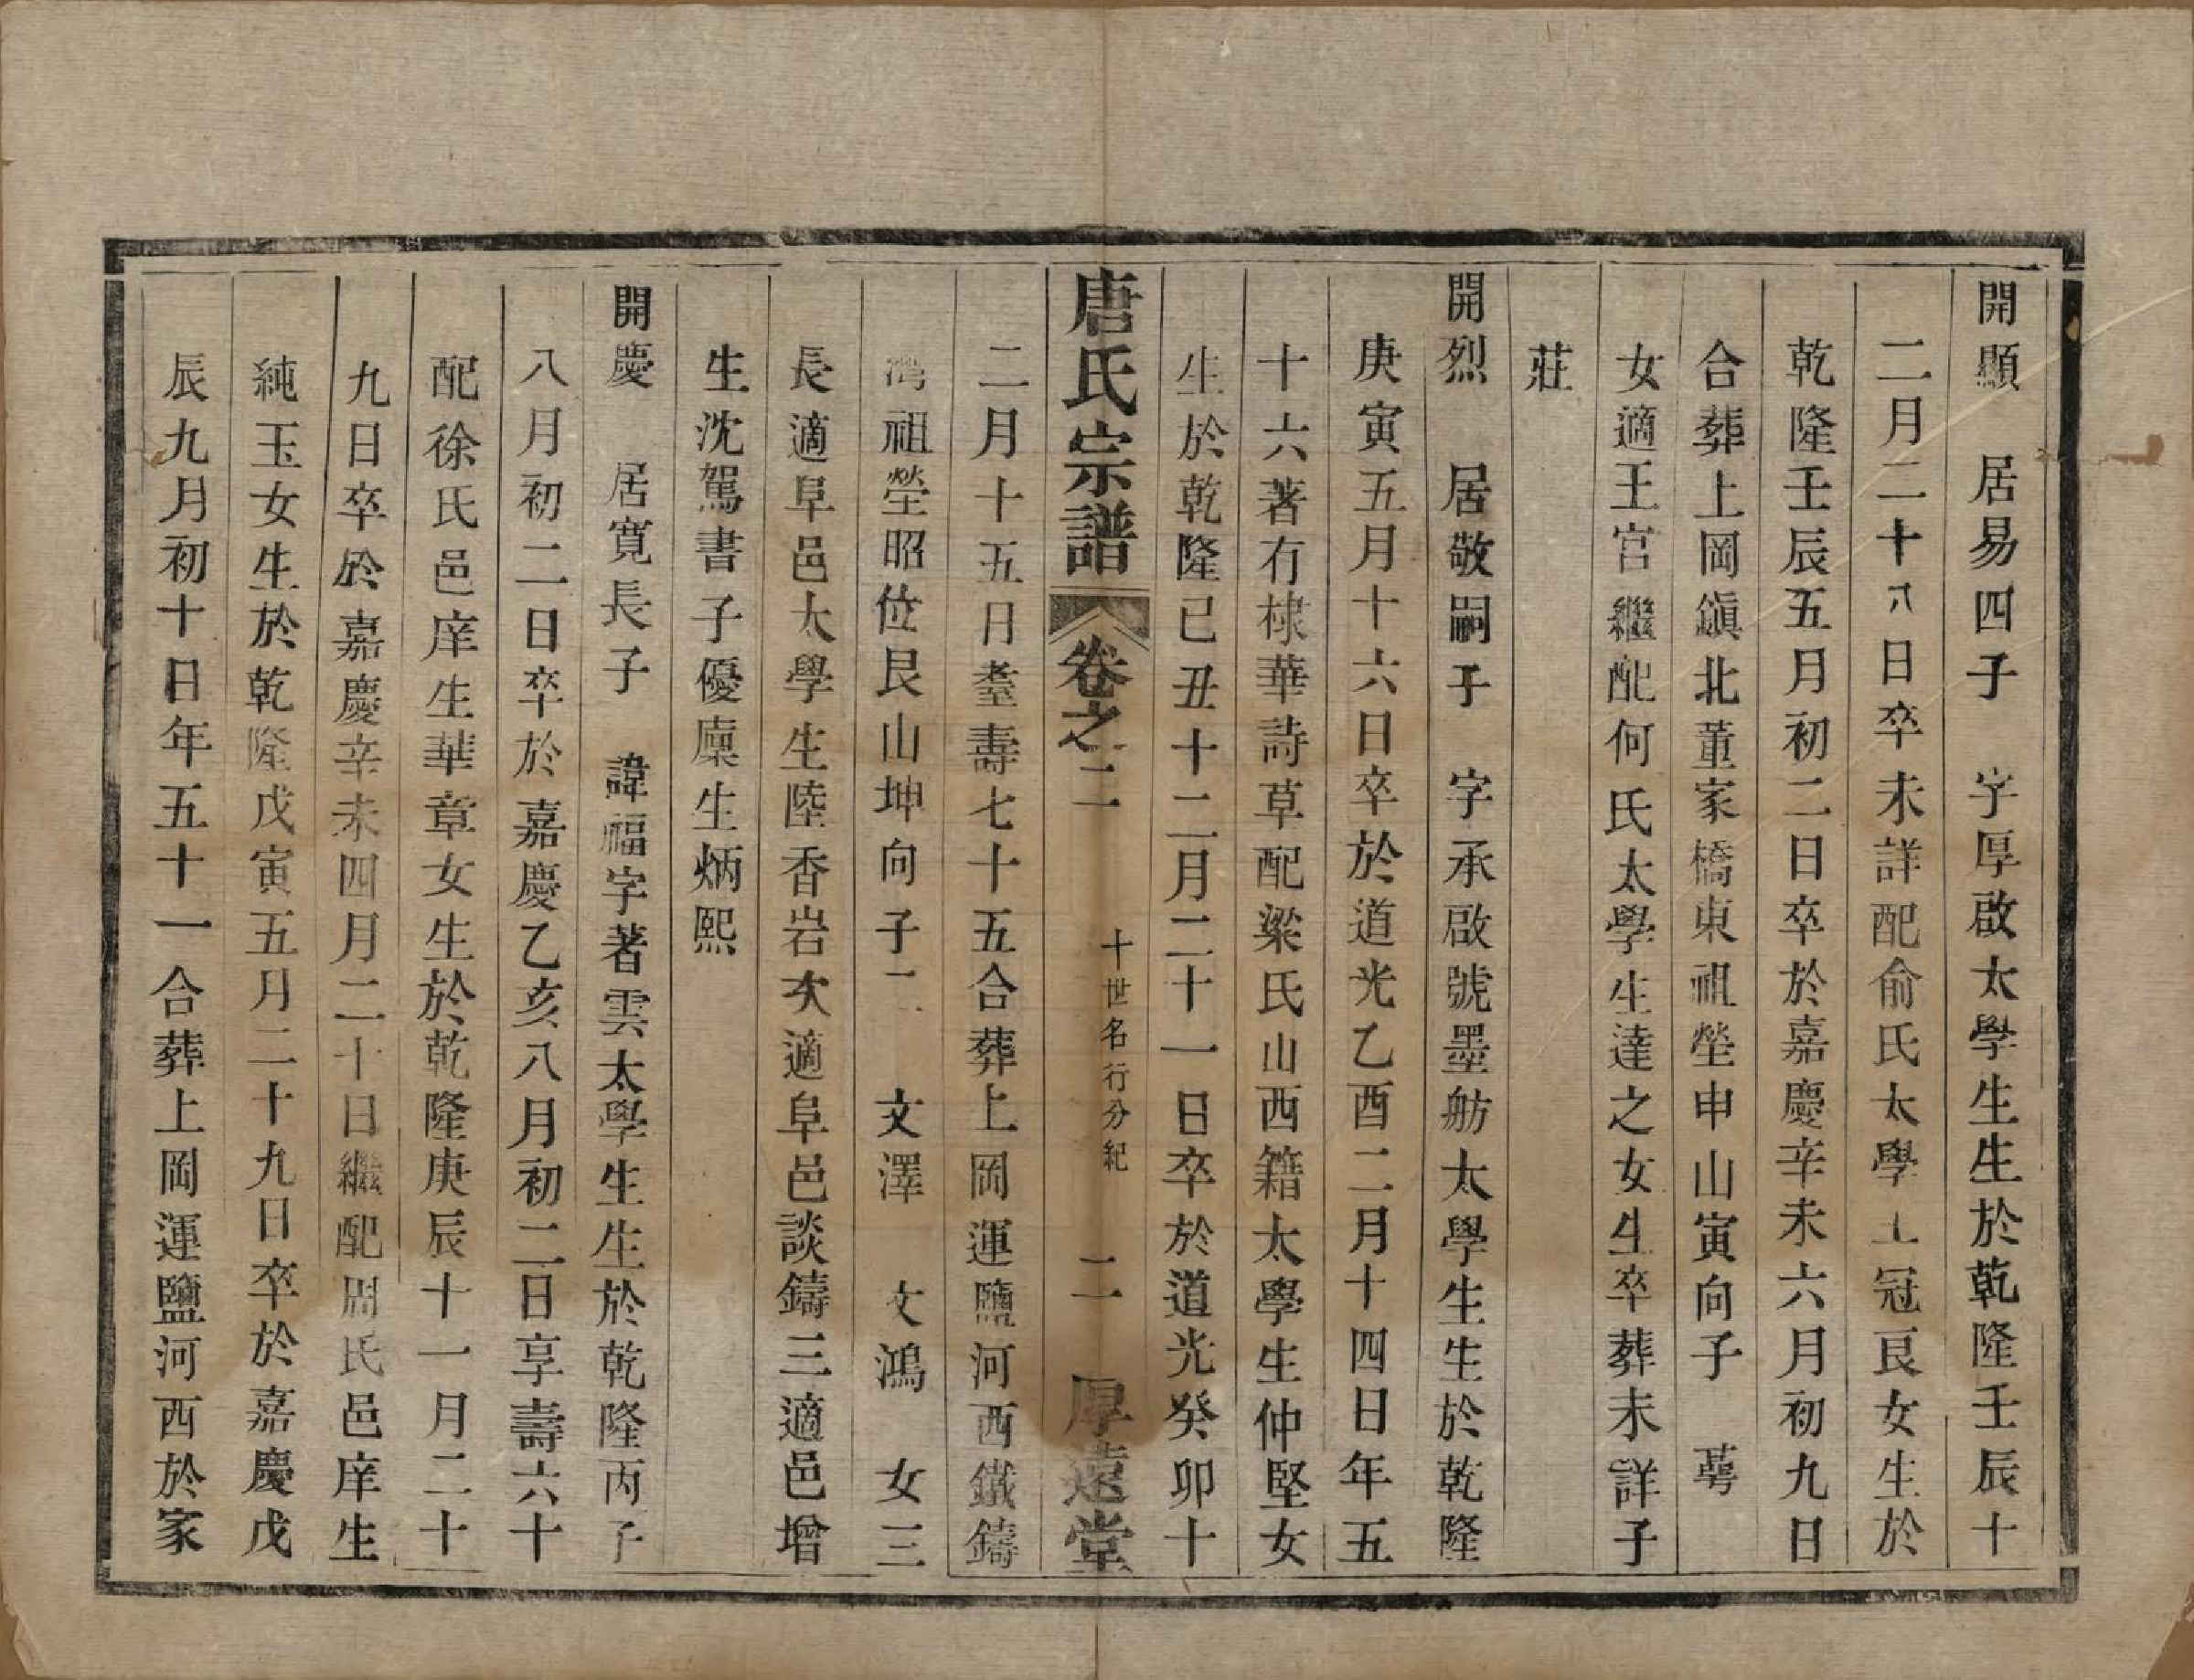 開顯　居易四子　字厚啟太學生生於乾隆壬辰十
二月二十八日卒未詳配俞氏太學士冠艮女生於
乾隆壬辰五月初二日卒於嘉慶辛未六月初九日
合葬上岡鎭北董家橋東祖塋申山寅向子　蕚
女適王宫繼配何氏太學生達之女生卒葬未詳子
莊
開烈　居敬嗣子　字承啟號墨舫太學生生於乾隆
庚寅五月十六日卒於道光乙酉二月十四日年五
十六著有棣華詩草配梁氏山西籍太學生仲堅女
生於乾隆己丑十二月二十一日卒於道光癸卯十
唐氏宗譜　卷之二　十世名行分紀　二　厚遠堂
二月十五日耋壽七十五合葬上岡運鹽河西鐵鑄
灣祖塋昭位艮山坤向子二　文澤　文鴻　女三
長適阜邑太學生陸香岩次適阜邑談鑄三適邑增
生沈駕書子優廩生炳熙
開慶　居寛長子　諱福字著雲太學生生於乾隆丙子
八月初二日卒於嘉慶乙亥八月初二日享壽六十
配徐氏邑庠生華章女生於乾隆庚辰十一月二十
九日卒於嘉慶辛未四月二十日繼配周氏邑庠生
純玉女生於乾隆戊寅五月二十九日卒於嘉慶戊
辰九月初十日年五十一合葬上岡運鹽河西於家